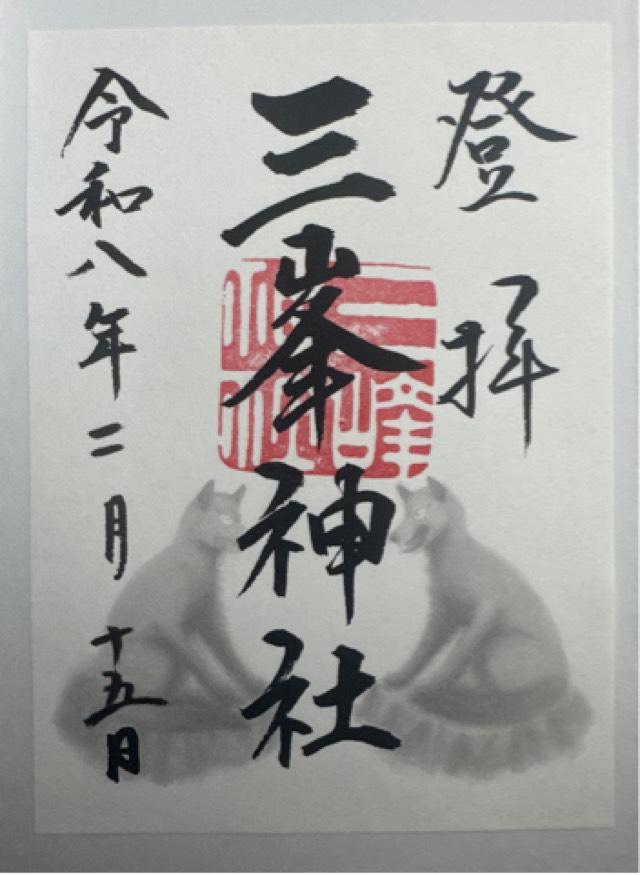 登拝
三峯神社
三峰神社
令和八年二月十五日